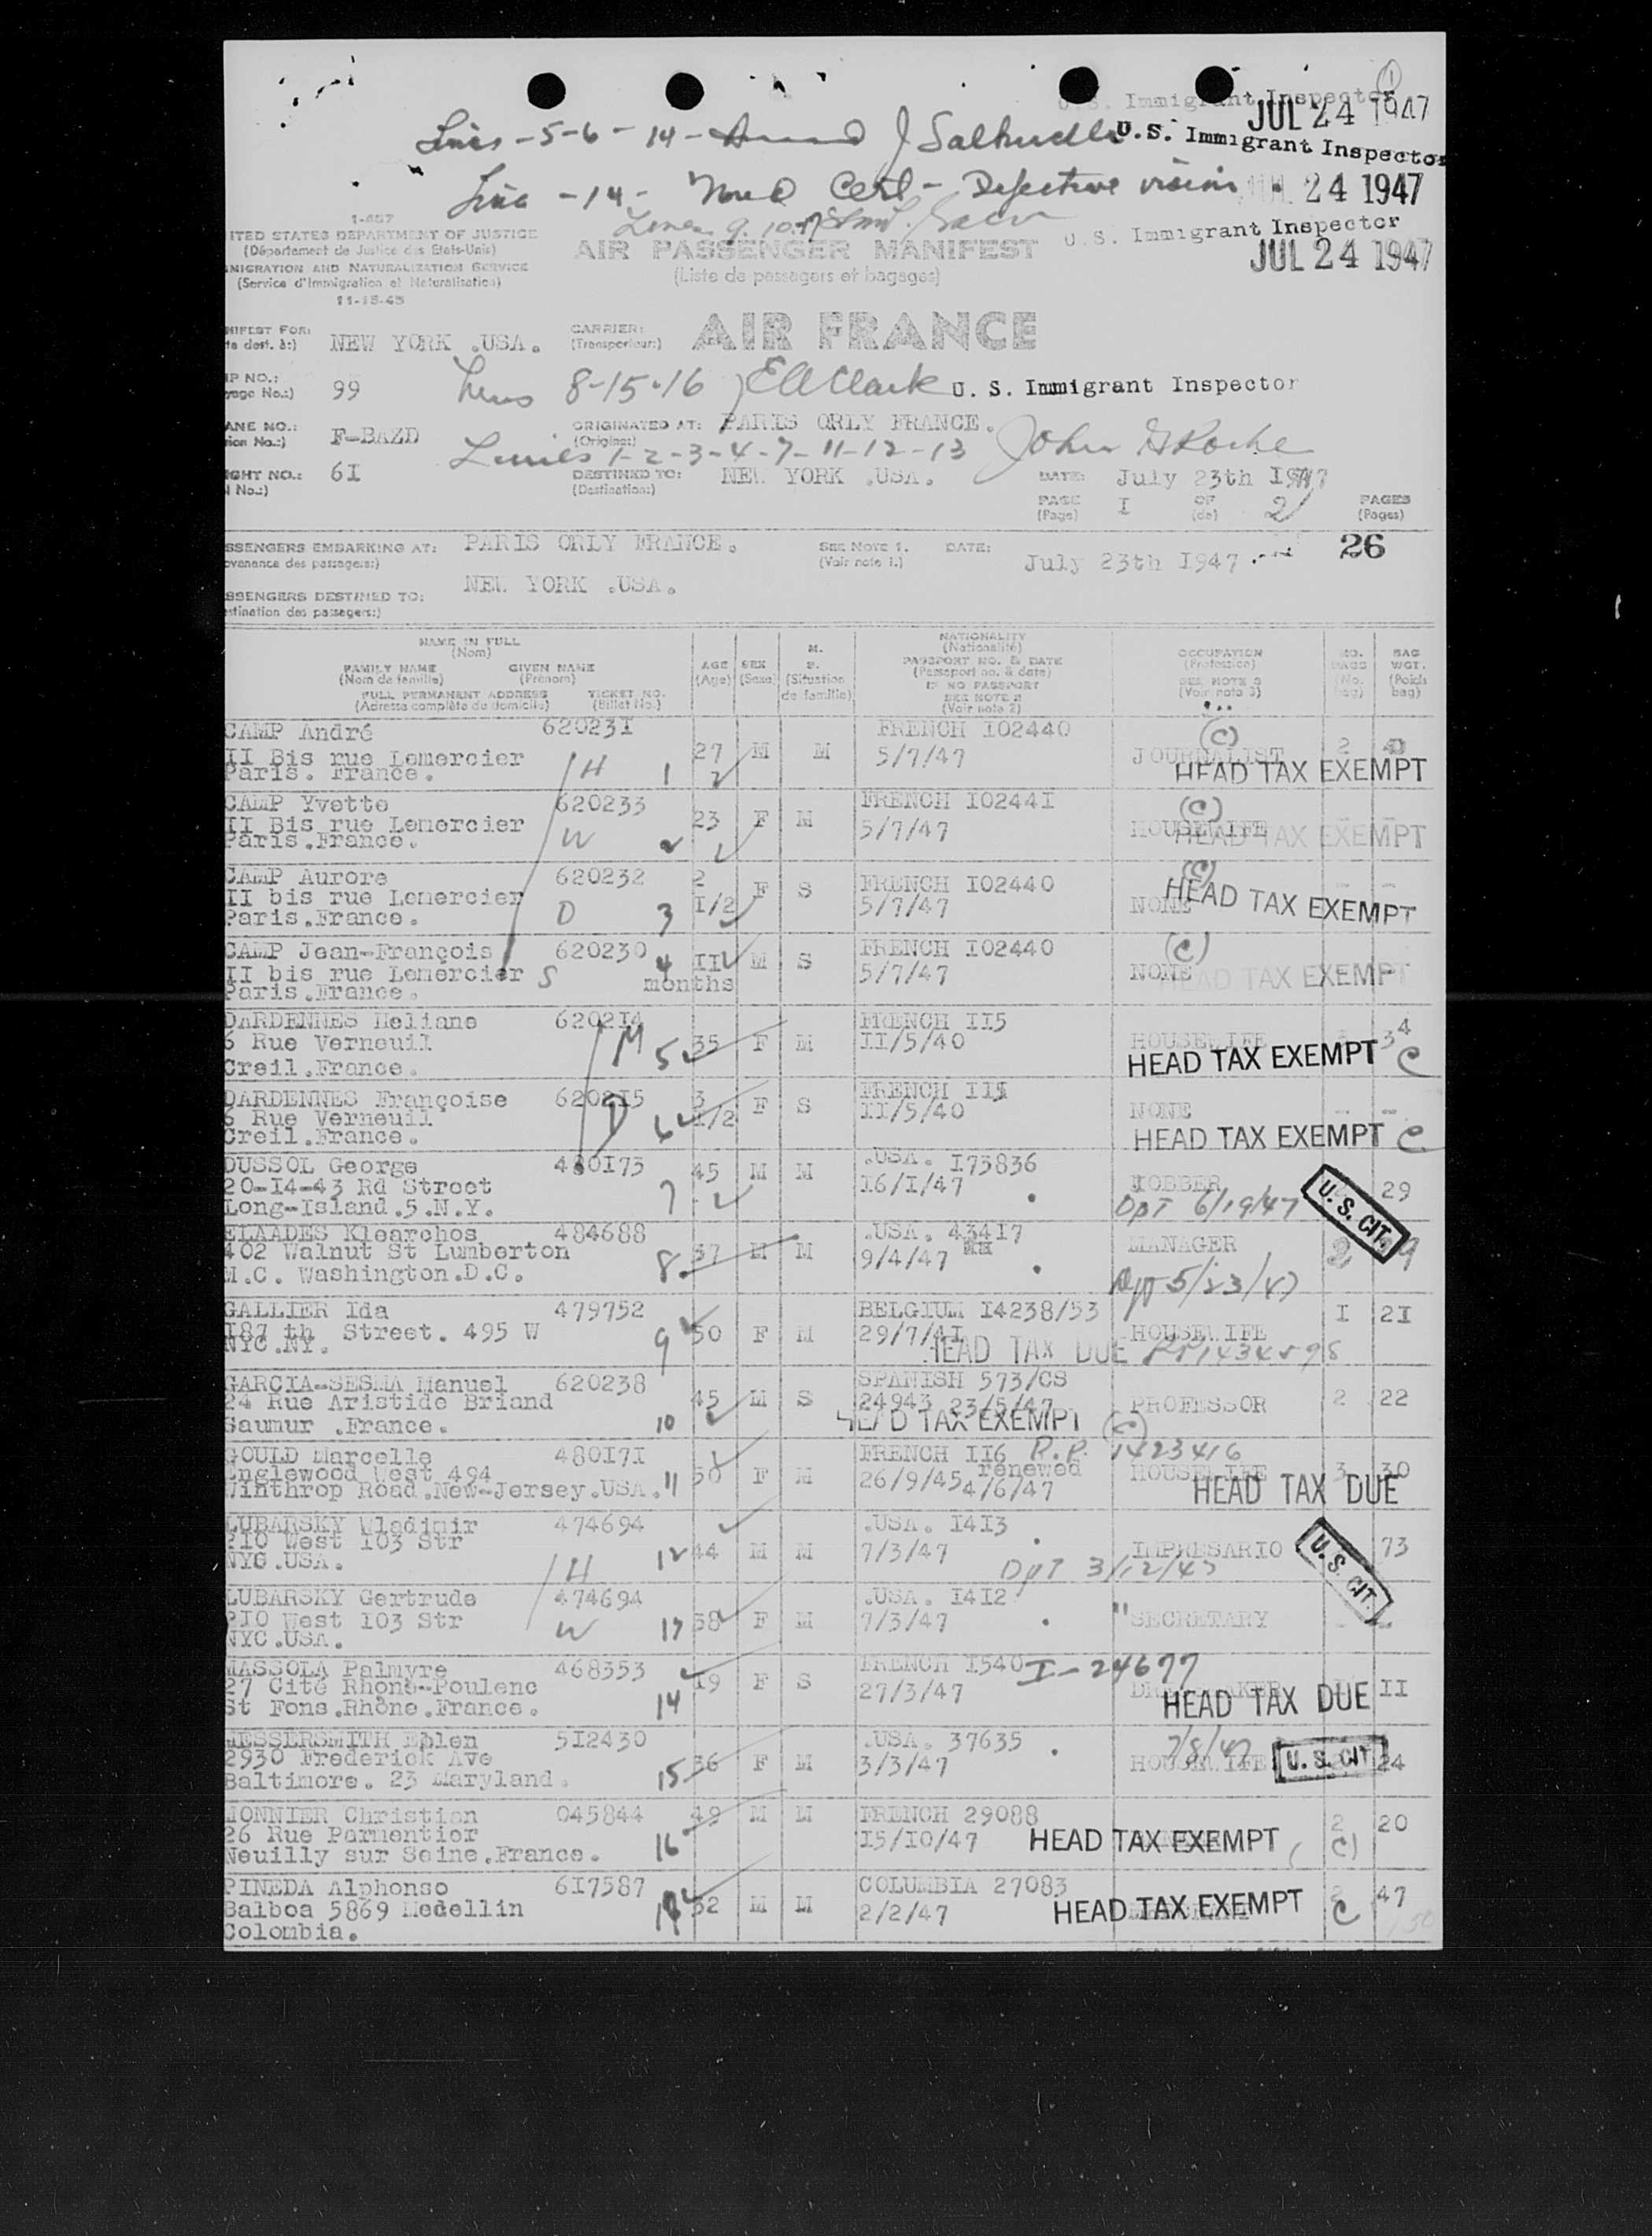 1
U.S. Immigrant Inspector
JUL 24 1947
Lines -5-6-14-
U.S. Immigrant Inspector
Line -14- Med Cert - Defective vision
24 1947
Lines 9.10.17
U.S. Immigrant Inspector
JUL 24 1947
1-457
ITED STATES DEPARTMENT OF JUSTICE
(Département de Justice des Etats-Unis)
MIGRATION AND NATURALIZATION SERVICE
(Service d'Immigration et Naturalisation)
11-15-45
AIR PASSENGER MANIFEST
(Liste de passagers et bagages)
NIFEST FOR:
te dest. à:)
NEW YORK .USA.
CARRIER:
(Transporteur:)
AIR FRANCE
IP NO.:
yage No.:)
99
Lines 8-15-16 E A Clark U. S. Immigrant Inspector
ANE NO.:
ion No.:)
F-BAZD
ORIGINATED AT: PARIS ORLY FRANCE.
(Origine:)
Lines 1-2-3-4-7-11-12-13 John G Roche
IGHT NO.:
l No.:)
6I
DESTINED TO: NEW YORK .USA.
(Destination:)
DATE: July 23th I947
PAGE I OF 2 PAGES
(Page) (de) (Pages)
SSENGERS EMBARKING AT: PARIS ORLY FRANCE.
ovenance des passagers:)
SEE NOTE 1. DATE: July 23th I947.
(Voir note 1.)
26
SSENGERS DESTINED TO: NEW YORK .USA.
stination des passagers:)
NAME IN FULL
(Nom)
FAMILY NAME GIVEN NAME
(Nom de famille) (Prénom)
FULL PERMANENT ADDRESS TICKET NO.
(Adresse complète du domicile) (Billet No.)
AGE
(Age)
SEX
(Sexe)
M.
S.
(Situation
de famille)
NATIONALITY
(Nationalité)
PASSPORT NO. & DATE
(Passeport no. & date)
IF NO PASSPORT
SEE NOTE 2
(Voir note 2)
OCCUPATION
(Profession)
SEE NOTE 3
(Voir note 3)
NO.
BAGS
(No.
bag)
BAG
WGT.
(Poids
bag)
CAMP André 62023I FRENCH I02440 (C)
II Bis rue Lemercier H 1 27 M M 5/7/47 JOURNALIST 2
Paris. France. HEAD TAX EXEMPT
CAMP Yvette 620233 FRENCH I0244I (C)
II Bis rue Lemercier W 2 23 F M 5/7/47 HOUSEWIFE
Paris.France. HEAD TAX EXEMPT
CAMP Aurore 620232 2 I/2 F S FRENCH I02440 (C)
II bis rue Lemercier D 3 5/7/47 NONE
Paris.France. HEAD TAX EXEMPT
CAMP Jean-François 620230 4 II months M S FRENCH I02440 (C)
II bis rue Lemercier S 5/7/47 NONE
Paris.France. HEAD TAX EXEMPT
DARDENNES Heliane 620214 FRENCH II5
6 Rue Verneuil M 5 35 F M II/5/40 HOUSEWIFE 34
Creil.France. HEAD TAX EXEMPT C
DARDENNES Françoise 620215 3 I/2 F S FRENCH II5
6 Rue Verneuil D 6 II/5/40 NONE
Creil.France. HEAD TAX EXEMPT C
DUSSOL George 480I73 45 M M .USA. I73836
20-I4-43 Rd Street 7 I6/I/47 29
Long-Island.5.N.Y. Dpt 6/19/47 U.S. CIT.
ELAADES Klearchos 484688 .USA. 43417
402 Walnut St Lumberton 8 37 M M 9/4/47 MANAGER 2
N.C. Washington.D.C. Dpt 5/23/47
GALLIER Ida 479752 BELGIUM I4238/53 I 2I
I87 th Street. 495 W 9 50 F M 29/7/4I HOUSEWIFE
NYC.NY. HEAD TAX DUE
GARCIA-SESMA Manuel 620238 SPANISH 573/CS
24 Rue Aristide Briand 45 M S 24943 23/5/47 PROFESSOR 2 22
Saumur .France. 10 HEAD TAX EXEMPT (C)
GOULD Marcelle 480I7I FRENCH II6 R.P. 1423416
Englewood West 494 50 F M 26/9/45 renewed HOUSEWIFE 3 30
Winthrop Road.New-Jersey.USA. 11 4/6/47 HEAD TAX DUE
LUBARSKY Wladimir 474694 .USA. I4I3
2I0 West I03 Str 12 44 M M 7/3/47 IMPRESARIO 73
NYC.USA. H Dpt 3/12/47 U.S. CIT.
LUBARSKY Gertrude 474694 .USA. I4I2
2I0 West I03 Str W 13 38 F M 7/3/47 "SECRETARY
NYC.USA.
MASSOLA Palmyre 468353 FRENCH I540 I-24677
27 Cité Rhône-Poulenc I9 F S 27/3/47 II
St Fons.Rhône.France. 14 HEAD TAX DUE
MESSERSMITH 5I2430 .USA. 37635 7/8/47
2930 Frederick Ave 36 F M 3/3/47 HOUSEWIFE U.S. CIT. 24
Baltimore. 23 Maryland. 15
MONNIER Christian 045844 49 M M FRENCH 29088 2 20
26 Rue Parmentier 16 I5/I0/47 HEAD TAX EXEMPT (C)
Neuilly sur Seine.France.
PINEDA Alphonso 6I7587 COLUMBIA 27083 2 47
Balboa 5869 Medellin 17 52 M M 2/2/47 HEAD TAX EXEMPT C
Colombia.